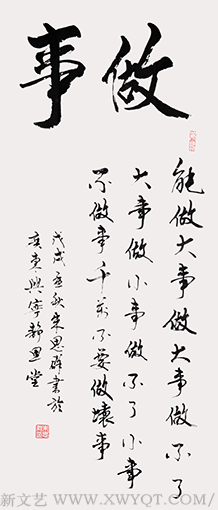 做事
能做大事做大事做不了
大事做小事做不了小事
不做事千萬不要做壞事
戊戌 秋朱思 書於
東興寧靜思堂
新文艺 - WWW.XWYQT.COM